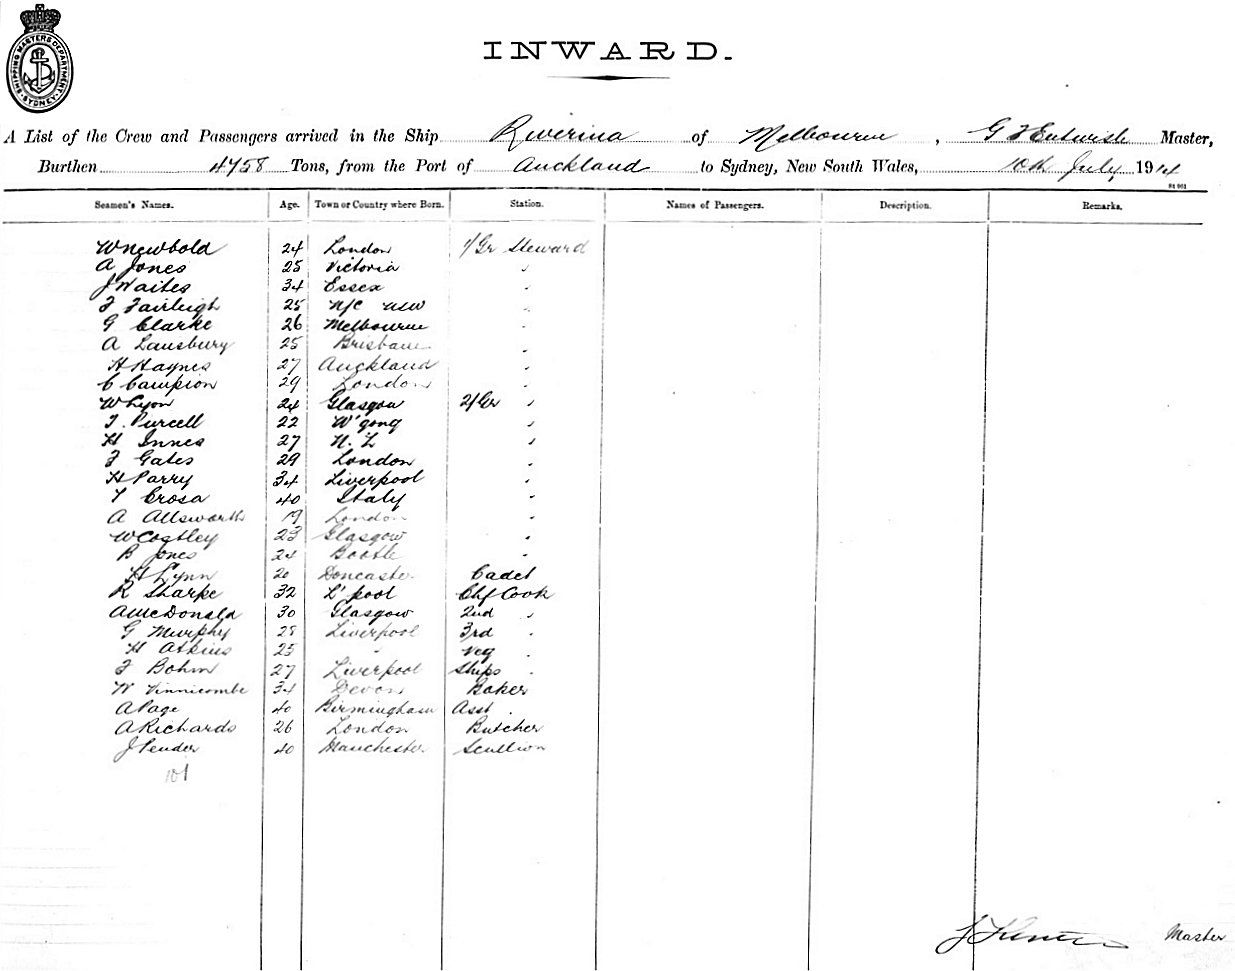 SHIPPING MASTERS DEPARTMENT
SYDNEY
INWARD.
A List of the Crew and Passengers arrived in the Ship Riverina of Melbourne, G F Entwisle Master,
Burthen 4758 Tons, from the Port of Auckland to Sydney, New South Wales, 10th July 1914
Seamen's Names. Age. Town or Country where Born. Station. Names of Passengers. Description. Remarks.
W Newbold 24 London 1/Gr Steward
A Jones 25 Victoria "
J Waites 34 Essex "
F Fairleigh 25 N/C NSW "
G Clarke 26 Melbourne "
A Lansbury 25 Brisbane "
H Haynes 27 Auckland "
C Campion 29 London "
W Lyon 24 Glasgow 2/Gr "
T. Purcell 22 W'gong "
H Innes 27 N. Z "
F Gates 29 London "
H Parry 34 Liverpool "
T Crosa 40 Italy "
A Allsworth 19 London "
W Cogtley 23 Glasgow "
B Jones 24 Bootle "
H Lynn 20 Doncaster Cadet
R Sharpe 32 L'pool Chf Cook
A McDonald 30 Glasgow 2nd "
G Murphy 28 Liverpool 3rd "
H Atkins 25 " Veg "
F Bohm 27 Liverpool Ships "
W Vinnicombe 34 Devon Baker
A Page 40 Birmingham Asst "
A Richards 26 London Butcher
J Pender 40 Manchester Scullion
101
Master